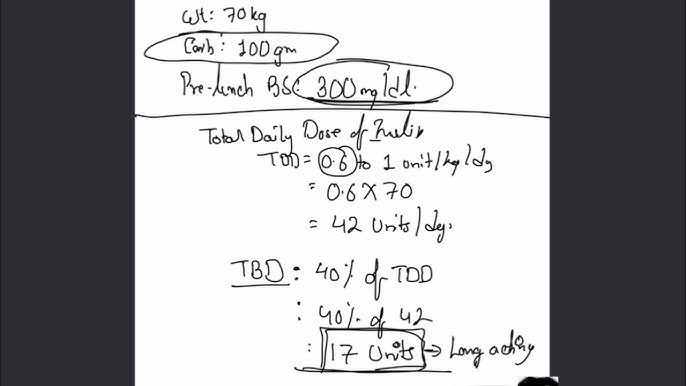 Wt: 70kg
Carb: 100gm
Pre-lunch BS: 300mg/dl.
Total Daily Dose of Insulin
TDD = 0.6 to 1 unit/kg/dy
= 0.6 X 70
= 42 Units/dy.
TBD : 40% of TDD
: 40% of 42
: 17 Units → Long acting